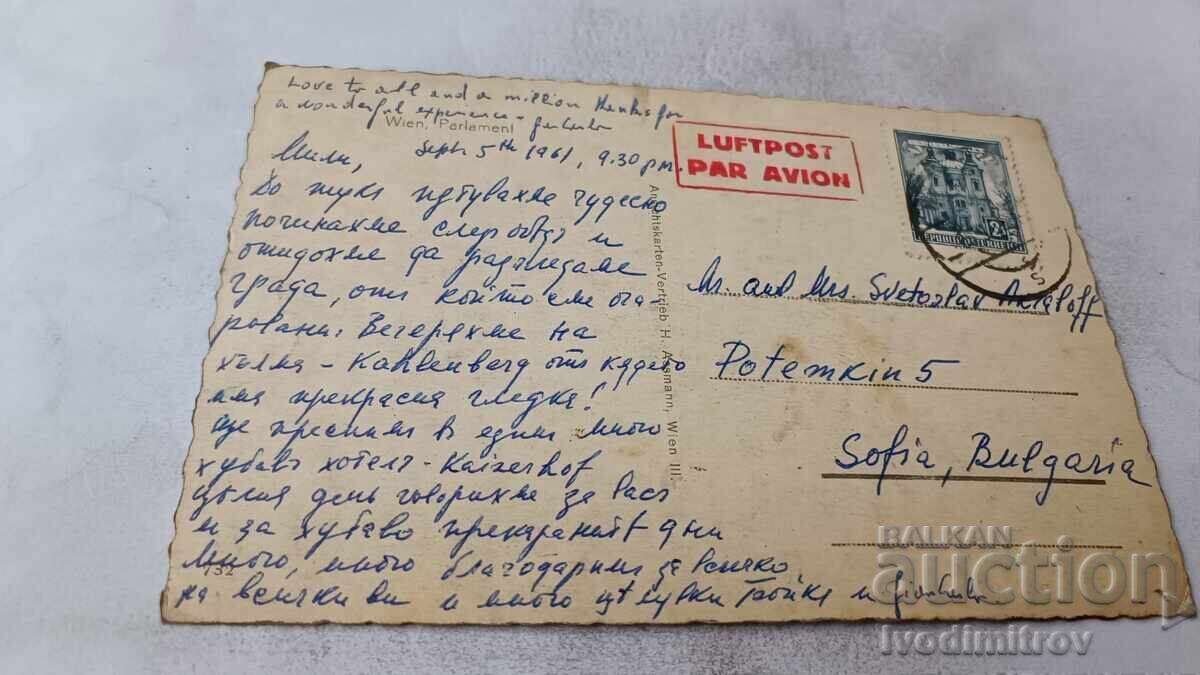 Love to all and a million thanks for
a wonderful experience -
Wien, Parlament
Sept. 5th 1961, 9.30 pm.
Мили,
До тукъ пътувахме чудесно
починахме следъ обѣдъ и
отидохме да разгледаме
града, отъ който сме оча-
ровани. Вечеряхме на
хълма - Kahlenberg отъ кѫдето
има прекрасна гледка!
Ще преспимъ в единъ много
хубавъ хотелъ - Kaiserhof
Целия день говорихме за Васъ
и за хубаво прекаранитѣ дни
Много, много благодарни за всичко
на всички ви и много цѣлувки
132
Ansichtskarten-Vertrieb H. Assmann, Wien III.
LUFTPOST
PAR AVION
2s
REPUBLIK ÖSTERREICH
Mr. and Mrs. Svetoslav
Potemkin 5
Sofia, Bulgaria
BALKAN
auction
Ivodimitrov